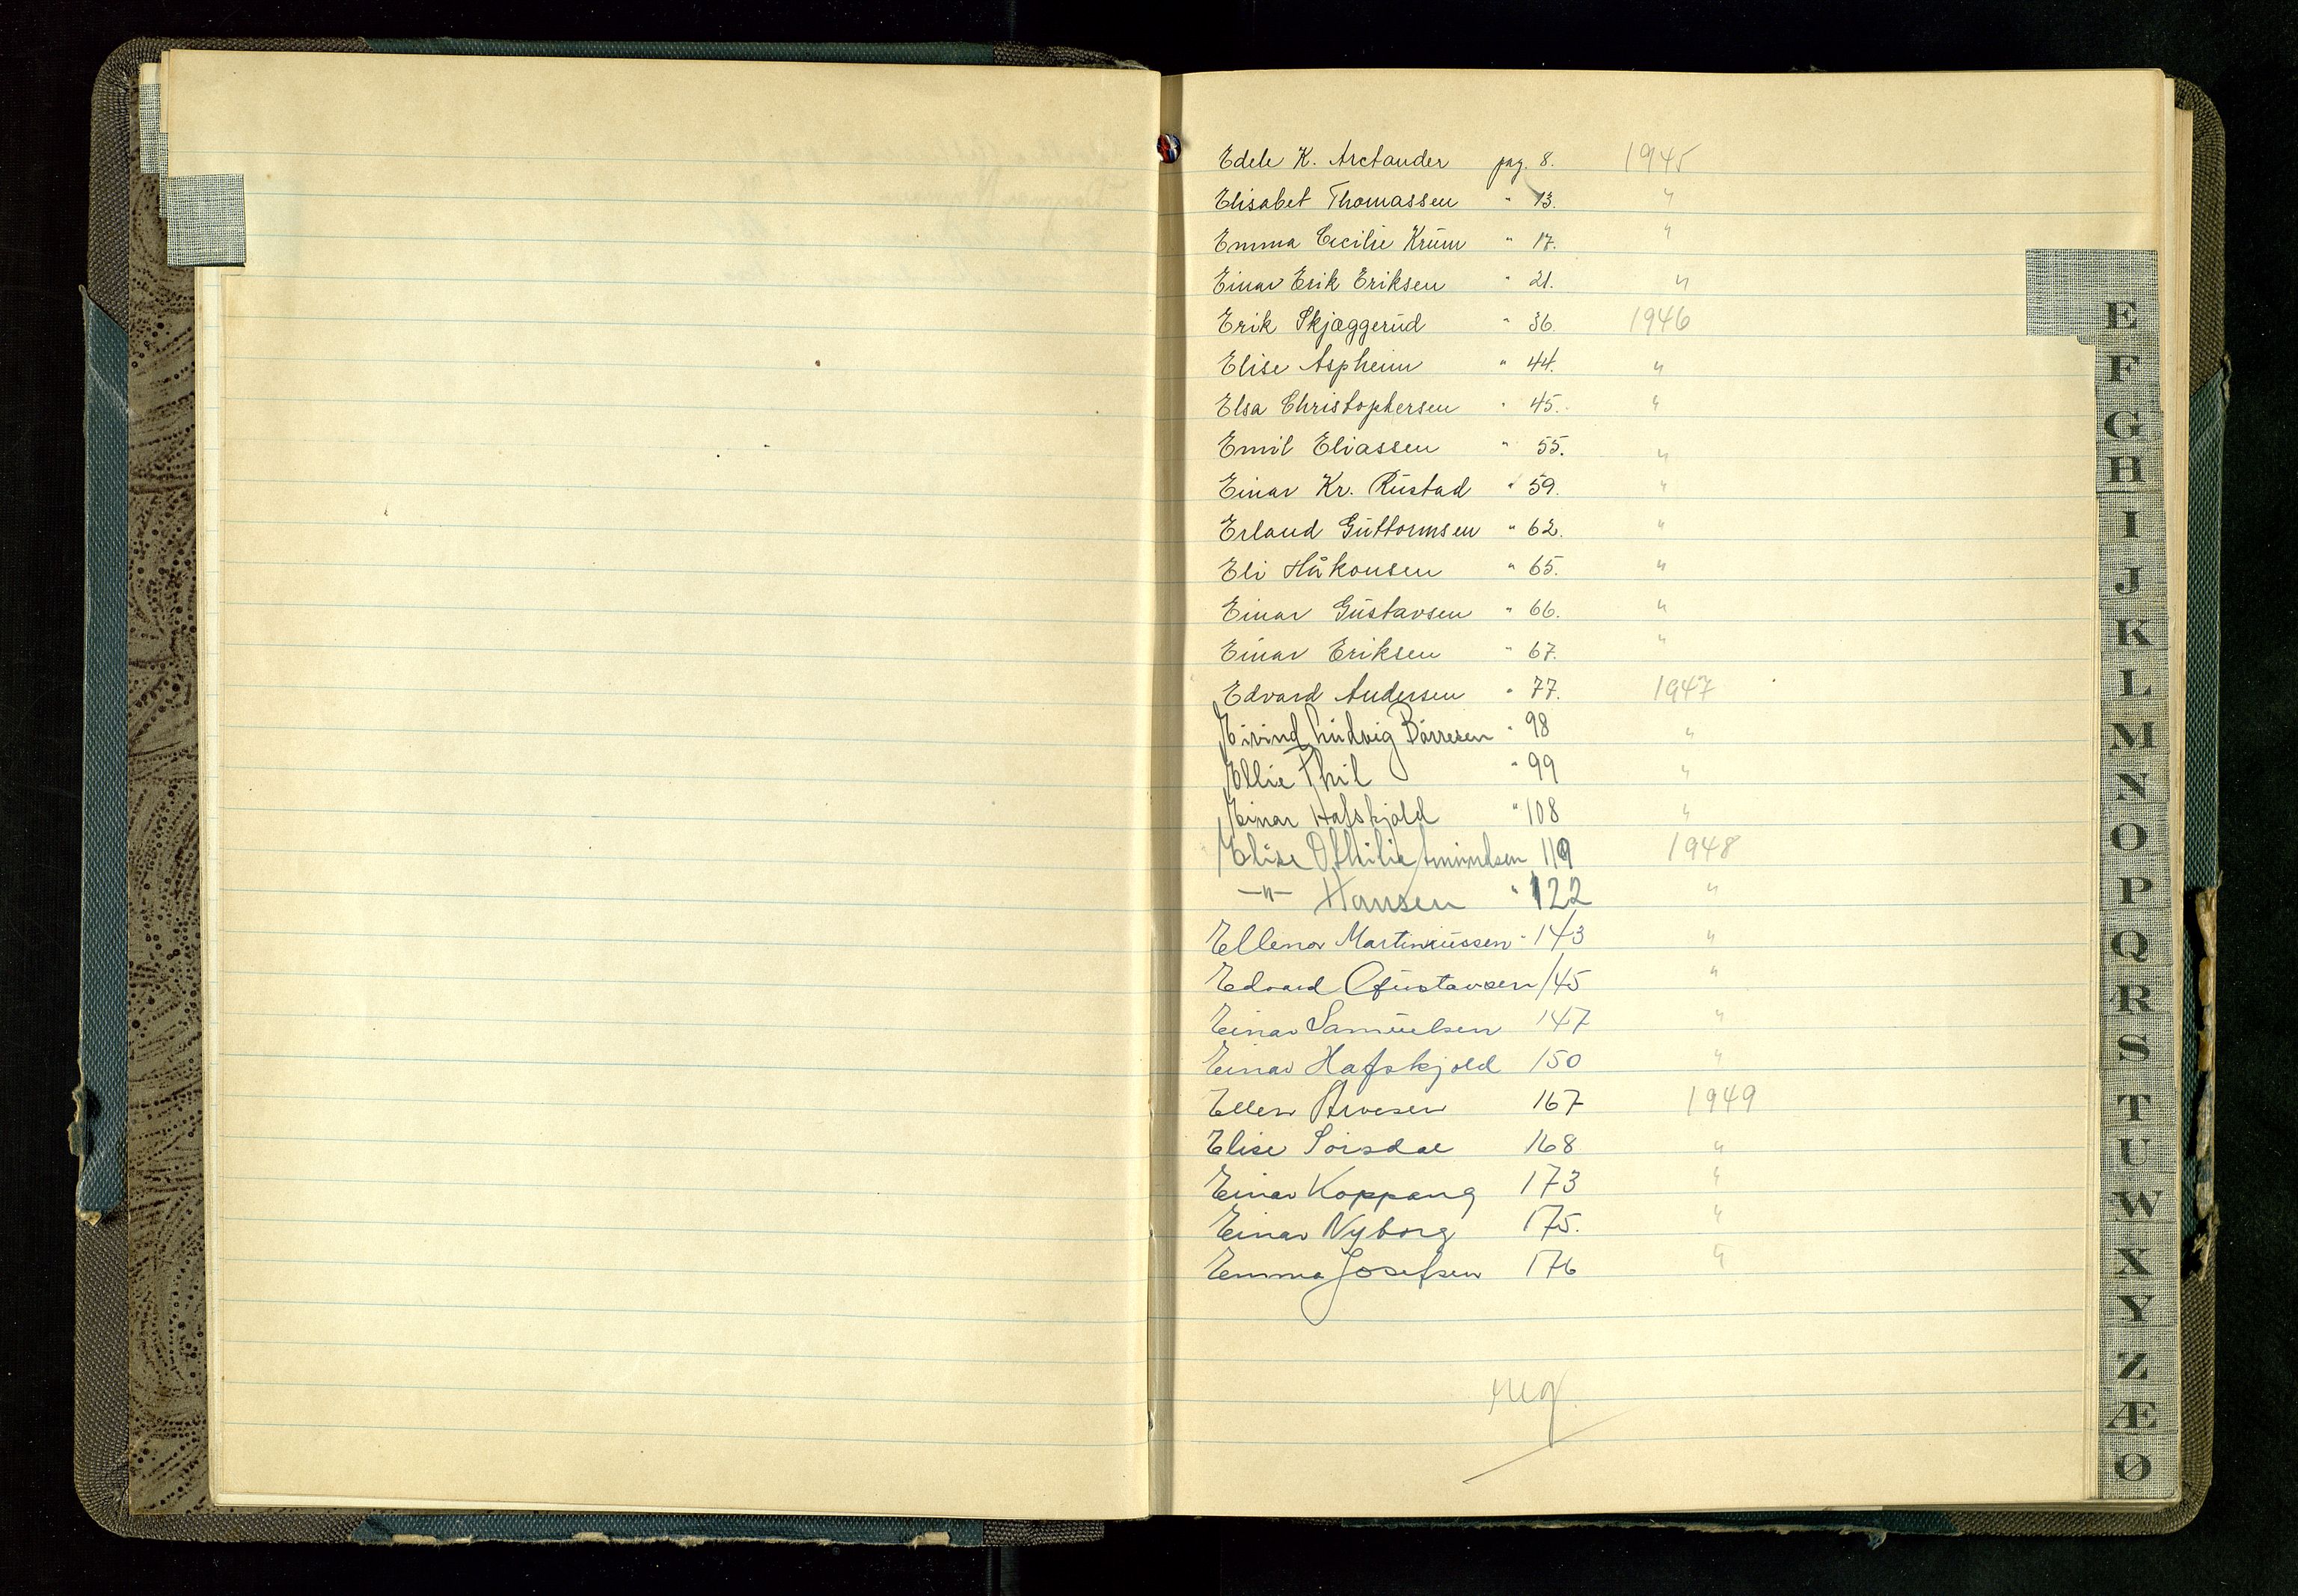 Edele K. Arctander pag. 8. 1945
Elisabet Thomassen " 13. "
Emma Cecilie Krum " 17. "
Einar Erik Eriksen " 21. "
Erik Skjæggerud " 36. 1946
Elise Aspheim " 44. "
Elsa Christophersen " 45. "
Emil Eliassen " 55. "
Einar Kr. Rustad " 59. "
Erland Guttormsen " 62. "
Eli Håkonsen " 65. "
Einar Gustavsen " 66. "
Einar Eriksen " 67. "
Edvard Andersen " 77. 1947
Eivind Ludvig Børresen " 98 "
Ellie Thil " 99 "
Einar Hafskjold " 108 "
Elise Othilie Amundsen 119 1948
—"— Hansen " 122 "
Ellenor Martinussen " 143 "
Edvard Gustavsen 145 "
Einar Samuelsen 147 "
Einar Hafskjold 150 "
Ellen Arvesen 167 1949
Elise Sørsdal 168 "
Einar Koppang 173 "
Einar Nyborg 175. "
Emma Josefsen 176 "
E
F
G
H
I
J
K
L
M
N
O
P
Q
R
S
T
U
W
X
Y
Z
Æ
Ø